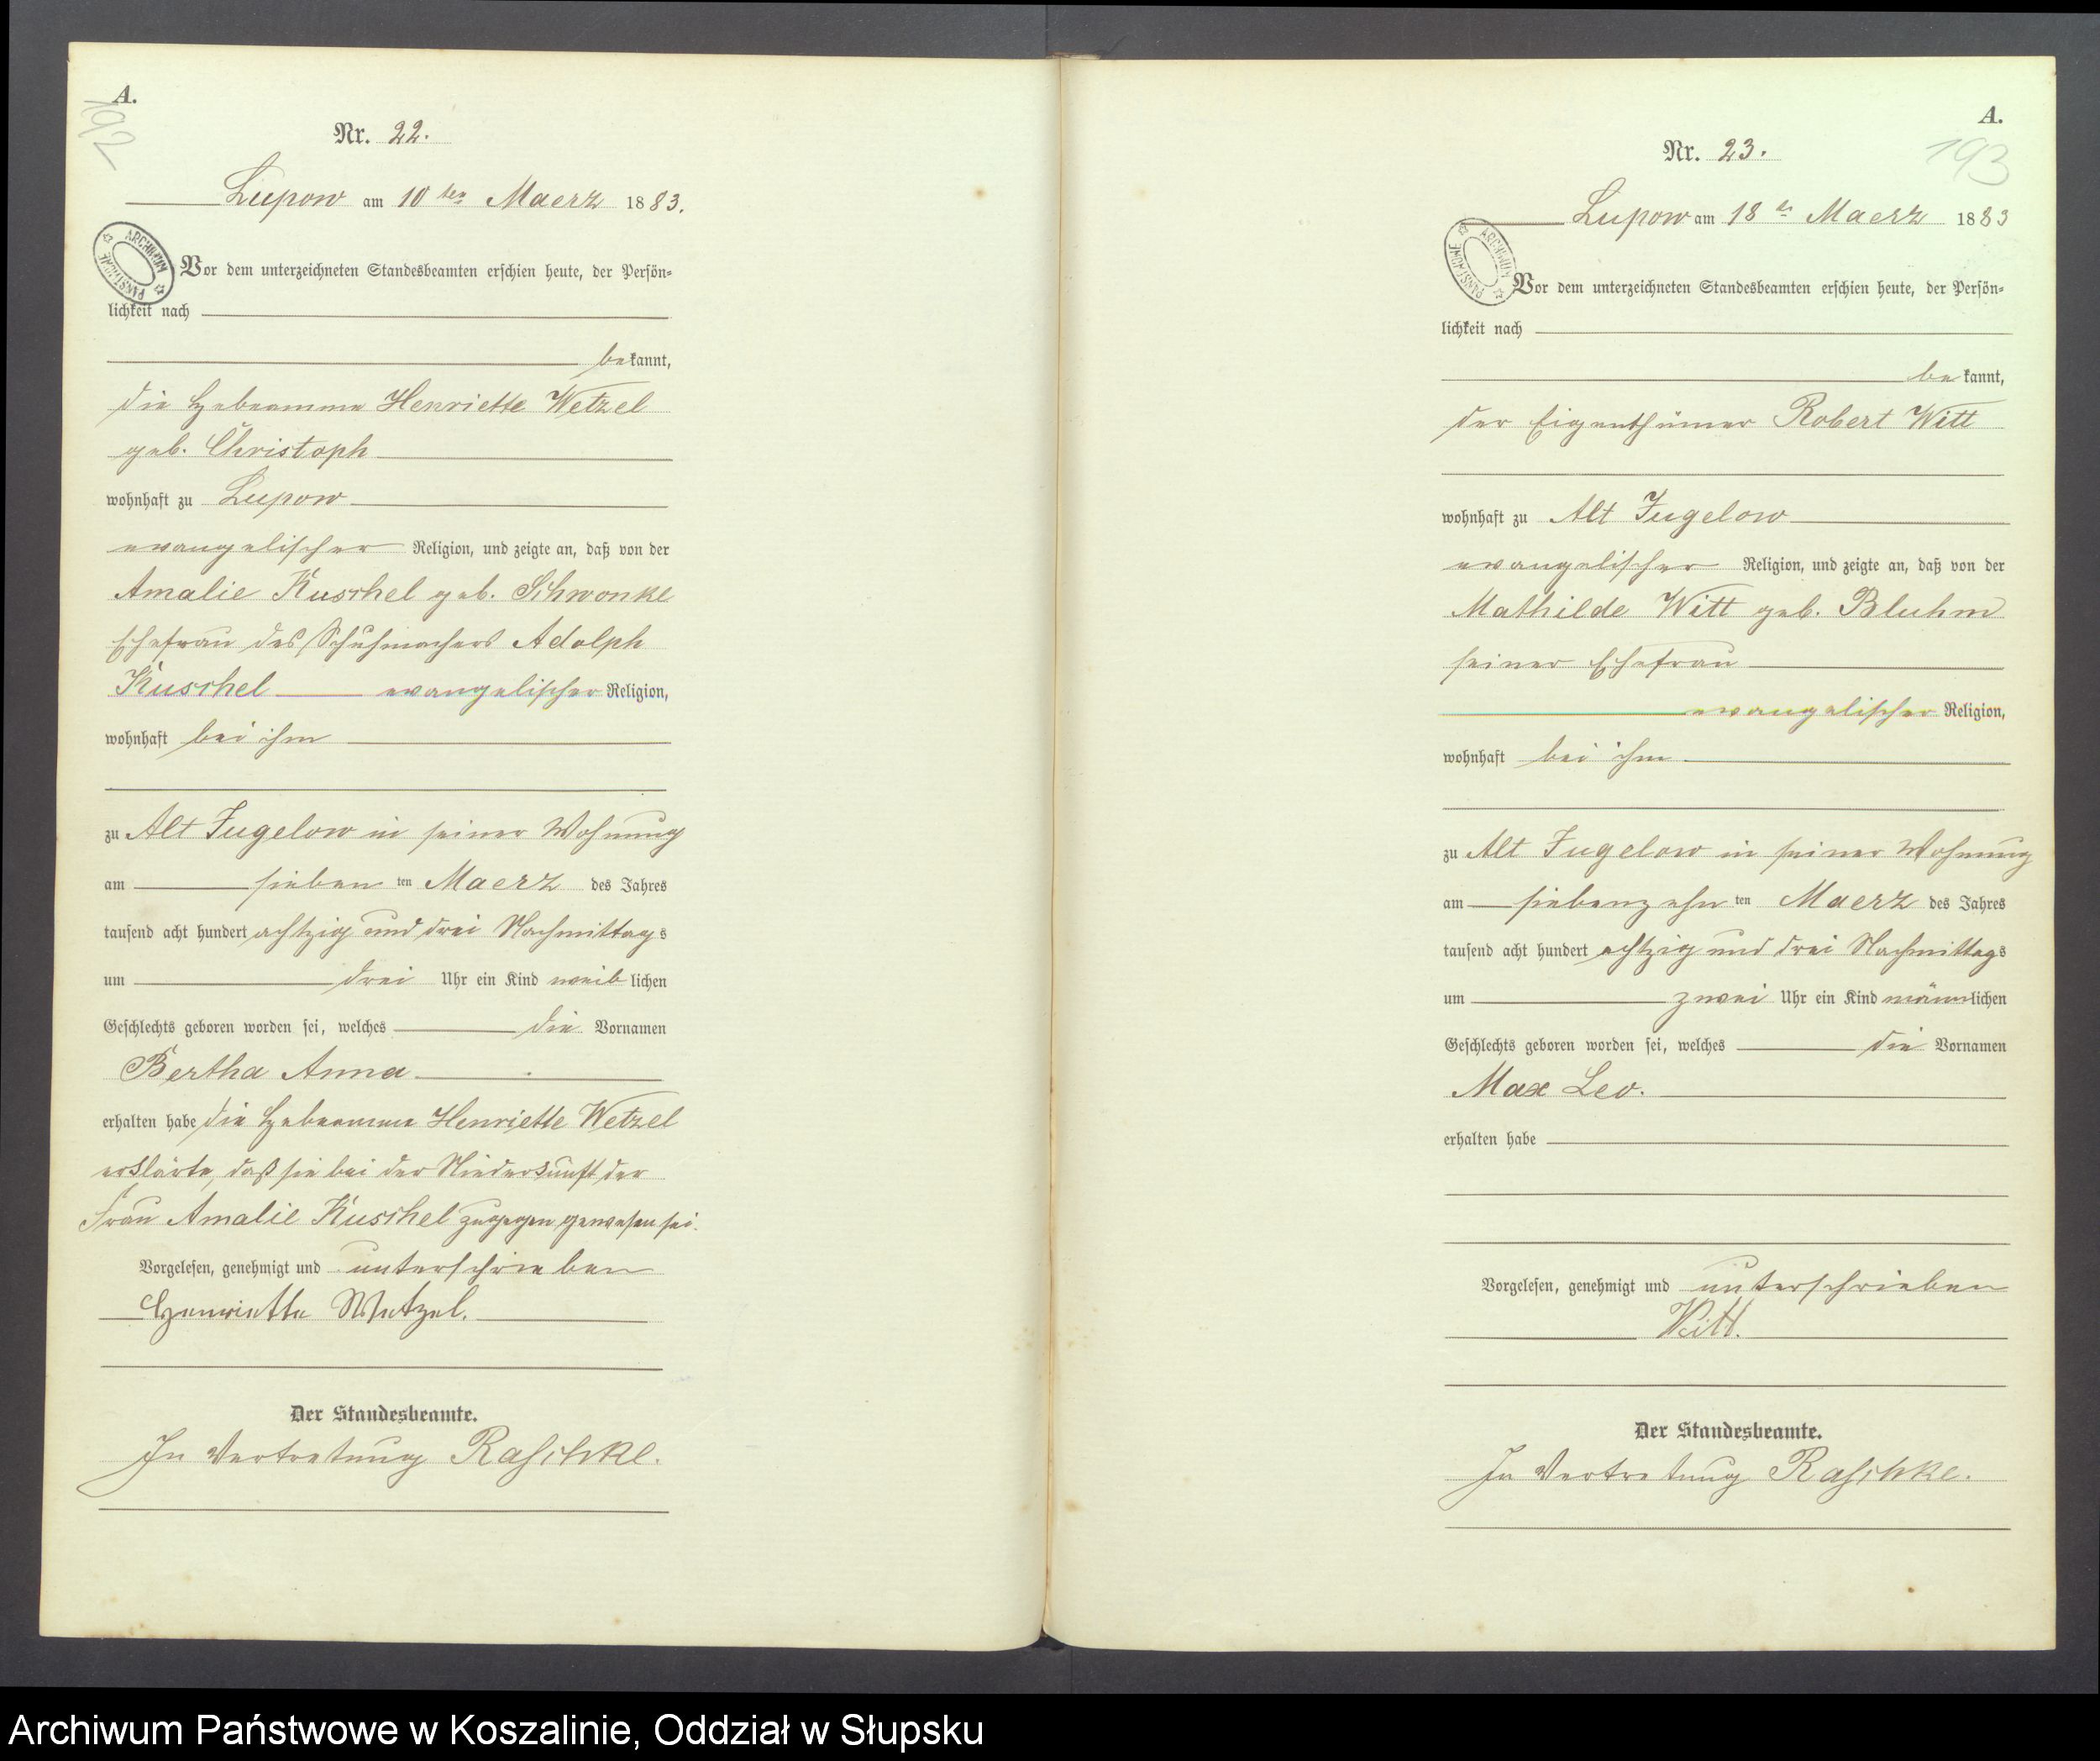 A.
192
Nr. 22.
Lupow am 10ten Maerz 1883.
ARCHIWUM PAŃSTWOWE
Vor dem unterzeichneten Standesbeamten erschien heute, der Persön-
lichkeit nach
bekannt,
die Hebeamme Henriette Wetzel
geb. Christoph
wohnhaft zu Lupow
evangelischer Religion, und zeigte an, daß von der
Amalie Kuschel geb. Schwonke
Ehefrau des Schuhmachers Adolph
Kuschel evangelischer Religion,
wohnhaft bei ihm
zu Alt Jugelow in seiner Wohnung
am sieben ten Maerz des Jahres
tausend acht hundert achtzig und drei Nachmittags
um drei Uhr ein Kind weiblichen
Geschlechts geboren worden sei, welches die Vornamen
Bertha Anna
erhalten habe die Hebeamme Henriette Wetzel
erklärte, daß sie bei der Niederkunft der
Frau Amalie Kuschel zugegen gewesen sei.
Vorgelesen, genehmigt und unterschrieben
Henriette Wetzel.
Der Standesbeamte.
In Vertretung Raschke.
A.
193
Nr. 23.
Lupow am 18ten Maerz 1883
ARCHIWUM PAŃSTWOWE
Vor dem unterzeichneten Standesbeamten erschien heute, der Persön-
lichkeit nach
bekannt,
der Eigenthümer Robert Witt
wohnhaft zu Alt Jugelow
evangelischer Religion, und zeigte an, daß von der
Mathilde Witt geb. Bluhm
seiner Ehefrau
evangelischer Religion,
wohnhaft bei ihm
zu Alt Jugelow in seiner Wohnung
am siebenzehn ten Maerz des Jahres
tausend acht hundert achtzig und drei Nachmittags
um zwei Uhr ein Kind männlichen
Geschlechts geboren worden sei, welches die Vornamen
Max Leo.
erhalten habe
Vorgelesen, genehmigt und unterschrieben
Witt.
Der Standesbeamte.
In Vertretung Raschke.
Archiwum Państwowe w Koszalinie, Oddział w Słupsku